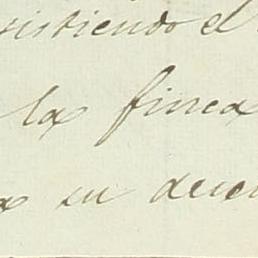 sistiendo el
la finca
su